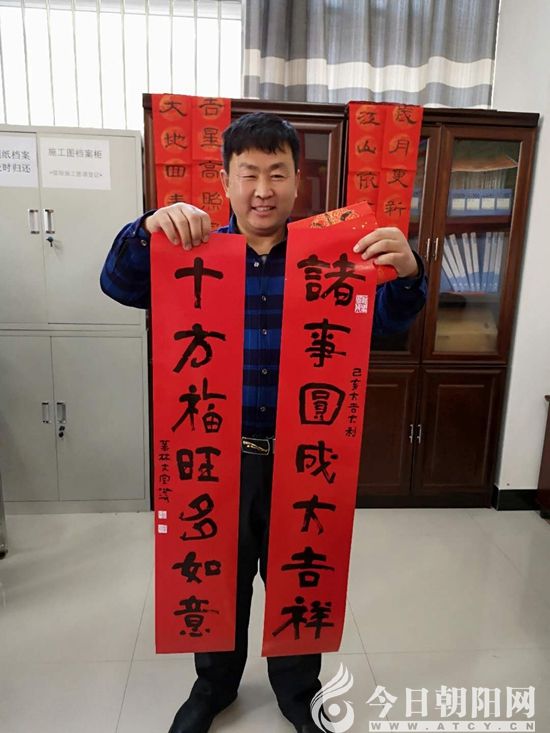 諸事圓成大吉祥
己亥大吉大利
十方福旺多如意
歲月更新
江山依
吉星高照
大地回春
纸档案
时归还
施工图档案柜
今日朝阳网
WWW.ATCY.CN